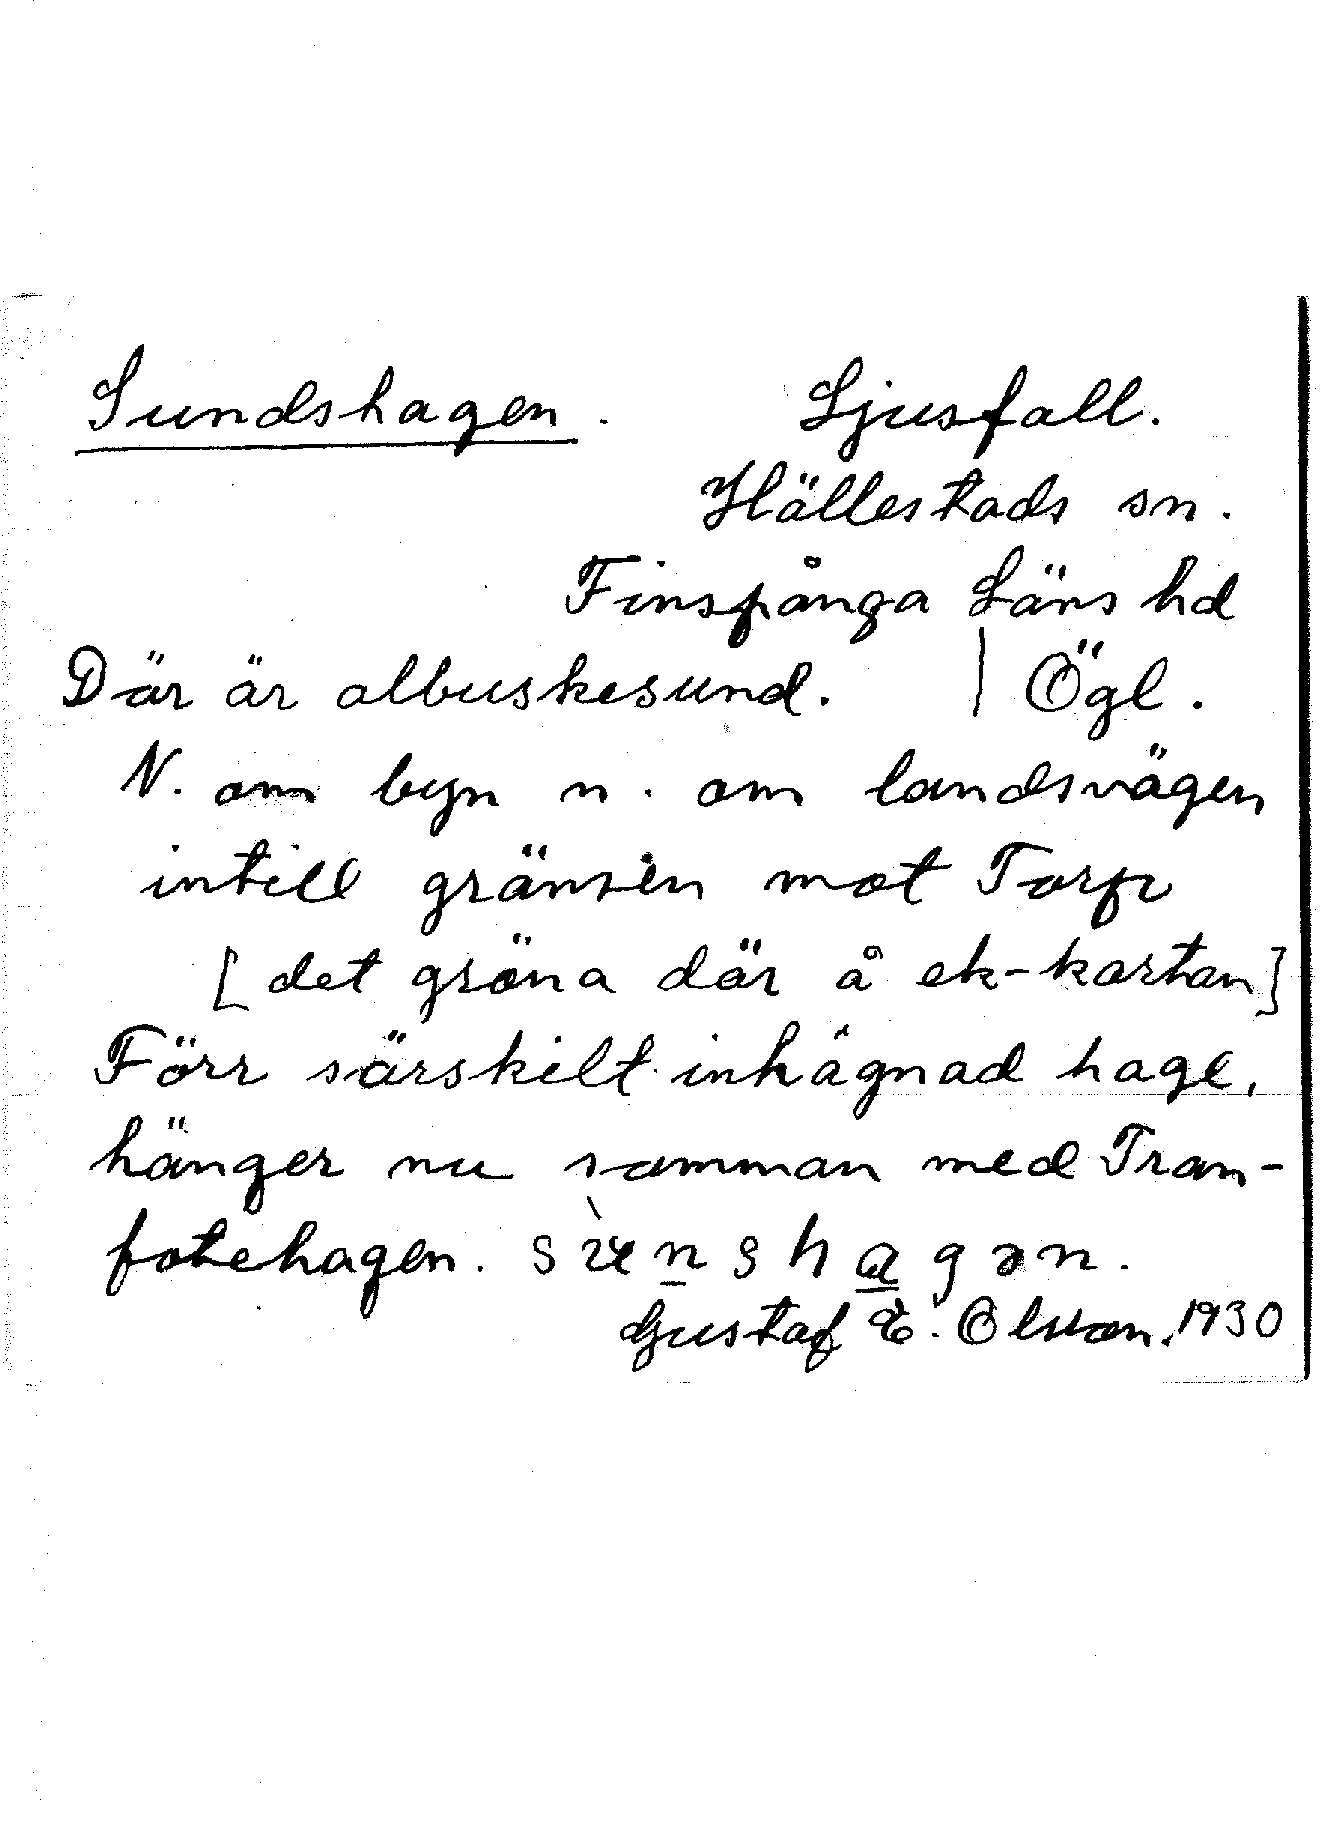 Sundshagen. Ljusfall.
Hällestads sn.
Finspånga Läns hd
Där är albuskesund. | Ögl.
N. om byn n. om landsvägen
intill gränsen mot Torp
[det gröna där å ek-kartan]
Förr särskilt inhägnad hage,
hänger nu samman med Tran-
fotehagen.
Gustaf E. Olsson. 1930